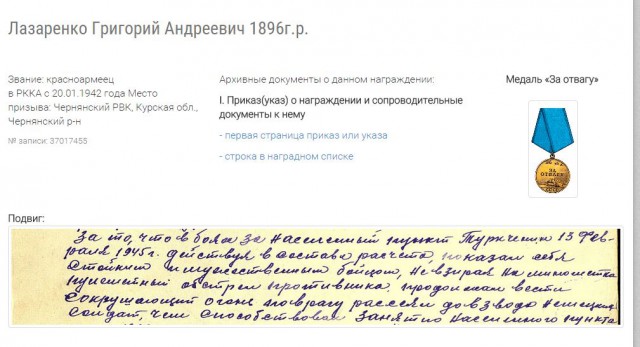 Лазаренко Григорий Андреевич 1896г.р.
Звание: красноармеец
в РККА с 20.01.1942 года Место
призыва: Чернянский РВК, Курская обл.,
Чернянский р-н
№ записи: 37017455
Архивные документы о данном награждении:
I. Приказ(указ) о награждении и сопроводительные
документы к нему
- первая страница приказ или указа
- строка в наградном списке
Медаль «За отвагу»
ЗА
ОТВАГУ
Подвиг:
За то, что в боях за населенный пункт 15 Фев-
раля 1945г. действуя в составе расчета, показал себя
стойким и мужественным бойцом, невзирая на
обстрел противника продолжал вести
сокрушающий огонь по врагу рассеял до взвода немецких
солдат, чем способствовал занятию населенного пункта